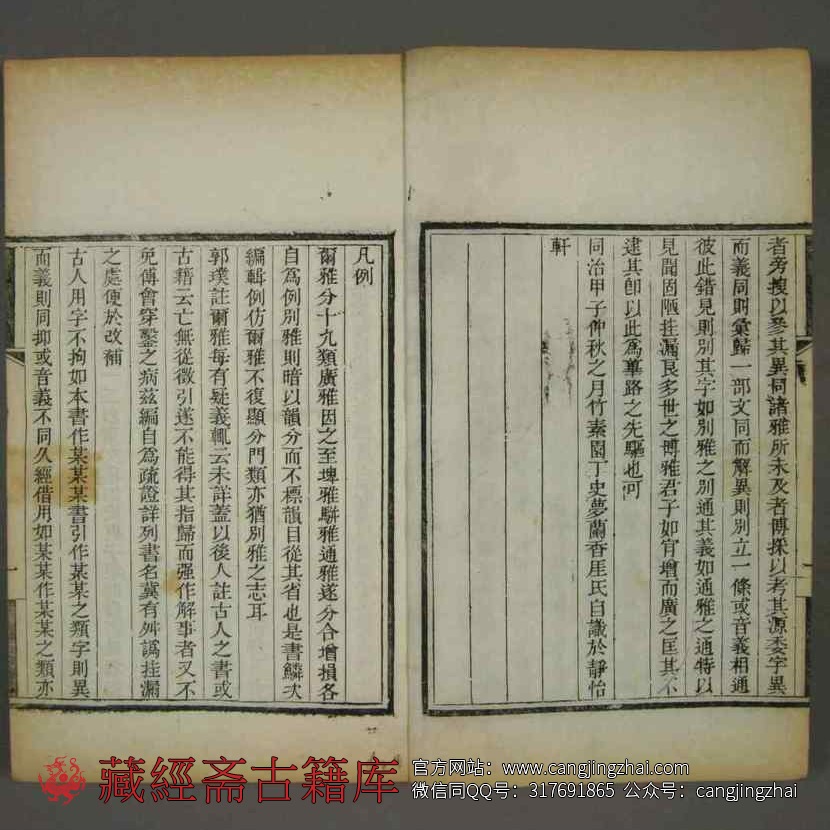 者旁搜以參其異同諸雅所未及者博採以考其源委字異
而義同則彙歸一部文同而解異則別立一條或音義相通
彼此錯見則別其字如別雅之別通其義如通雅之通特以
見聞固陋挂漏良多世之博雅君子如肯增而廣之匡其不
逮其卽以此爲蓽路之先驅也可
同治甲子仲秋之月竹素園丁史夢蘭香厓氏自識於靜怡
軒
凡例
爾雅分十九類廣雅因之至埤雅駢雅通雅遂分合增損各
自爲例別雅則暗以韻分而不標韻目從其省也是書鱗次
編輯例仿爾雅不復顯分門類亦猶別雅之志耳
郭璞註爾雅每有疑義輒云未詳蓋以後人註古人之書或
古籍云亡無從徵引遂不能得其指歸而强作解事者又不
免傅會穿鑿之病兹編自爲疏證詳列書名冀有舛譌挂漏
之處便於改補
古人用字不拘如本書作某某某書引作某某之類字則異
而義則同抑或音義不同久經借用如某某作某某之類亦
藏經斋古籍库
官方网站：www.cangjingzhai.com
微信同QQ号：317691865 公众号：cangjingzhai